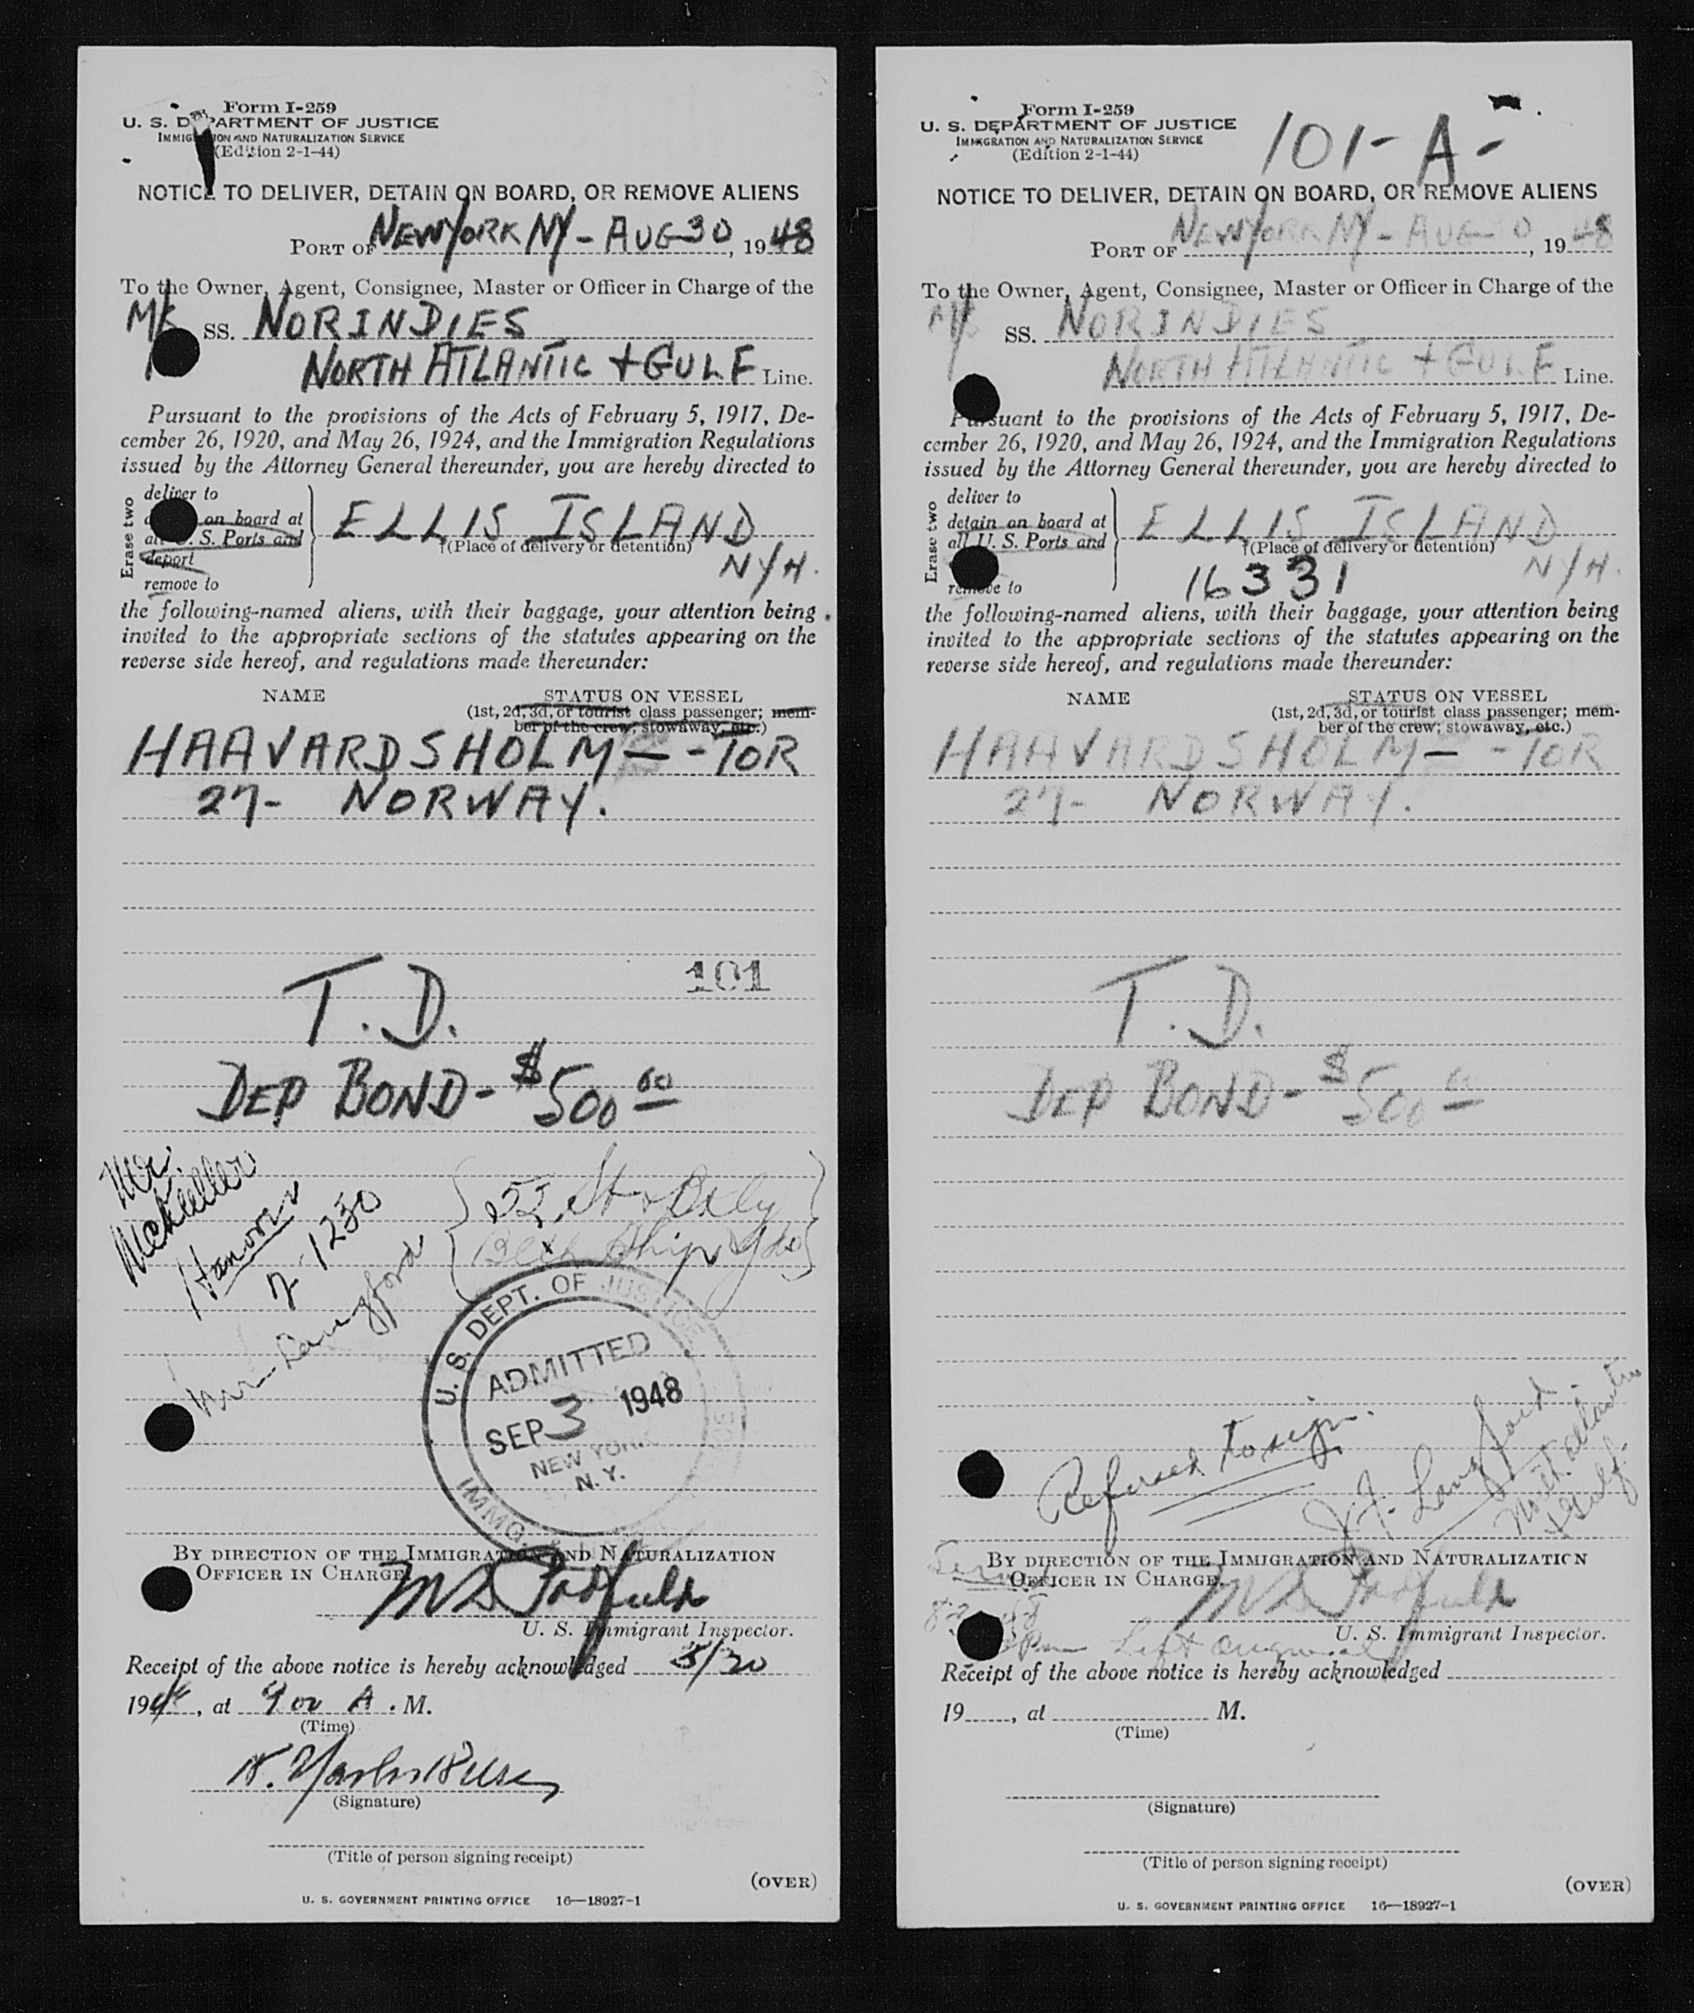 Form I-259
U. S. DEPARTMENT OF JUSTICE
IMMIGRATION AND NATURALIZATION SERVICE
(Edition 2-1-44)
NOTICE TO DELIVER, DETAIN ON BOARD, OR REMOVE ALIENS
PORT OF NEW YORK NY - AUG 30, 1948
To the Owner, Agent, Consignee, Master or Officer in Charge of the
SS. NORINDIES
NORTH ATLANTIC + GULF Line.
Pursuant to the provisions of the Acts of February 5, 1917, De-
cember 26, 1920, and May 26, 1924, and the Immigration Regulations
issued by the Attorney General thereunder, you are hereby directed to
Erase two
deliver to
on board at
all U. S. Ports and
deport
remove to
ELLIS ISLAND
†(Place of delivery or detention)
NYH.
the following-named aliens, with their baggage, your attention being
invited to the appropriate sections of the statutes appearing on the
reverse side hereof, and regulations made thereunder:
NAME STATUS ON VESSEL
(1st, 2d, 3d, or tourist class passenger; mem-
ber of the crew; stowaway, etc.)
HAAVARDSHOLM - - TOR
27- NORWAY.
101
T.D.
DEP BOND - $500 00
Mr
McKeller
Hanover
2-1230
Mr Langford
U. S. DEPT. OF JUSTICE
ADMITTED
SEP 3 1948
NEW YORK
N. Y.
IMMG.
BY DIRECTION OF THE IMMIGRATION AND NATURALIZATION
OFFICER IN CHARGE
U. S. Immigrant Inspector.
Receipt of the above notice is hereby acknowledged 8/30
1948, at 9 00 A. M.
(Time)
(Signature)
(Title of person signing receipt)
(OVER)
U. S. GOVERNMENT PRINTING OFFICE 16—18927-1
Form I-259
U. S. DEPARTMENT OF JUSTICE
IMMIGRATION AND NATURALIZATION SERVICE
(Edition 2-1-44)
101-A-
NOTICE TO DELIVER, DETAIN ON BOARD, OR REMOVE ALIENS
PORT OF NEW YORK NY - AUG 30, 1948
To the Owner, Agent, Consignee, Master or Officer in Charge of the
SS. NORINDIES
NORTH ATLANTIC + GULF Line.
Pursuant to the provisions of the Acts of February 5, 1917, De-
cember 26, 1920, and May 26, 1924, and the Immigration Regulations
issued by the Attorney General thereunder, you are hereby directed to
Erase two
deliver to
detain on board at
all U. S. Ports and
remove to
ELLIS ISLAND
†(Place of delivery or detention)
NYH.
16331
the following-named aliens, with their baggage, your attention being
invited to the appropriate sections of the statutes appearing on the
reverse side hereof, and regulations made thereunder:
NAME STATUS ON VESSEL
(1st, 2d, 3d, or tourist class passenger; mem-
ber of the crew; stowaway, etc.)
HAAVARDSHOLM - - TOR
27- NORWAY.
T.D.
DEP BOND - $500
Refused to sign.
J. F. Langford
North Atlantic
& Gulf
BY DIRECTION OF THE IMMIGRATION AND NATURALIZATION
OFFICER IN CHARGE.
Left original
U. S. Immigrant Inspector.
Receipt of the above notice is hereby acknowledged
19, at M.
(Time)
(Signature)
(Title of person signing receipt)
(OVER)
U. S. GOVERNMENT PRINTING OFFICE 16—18927-1